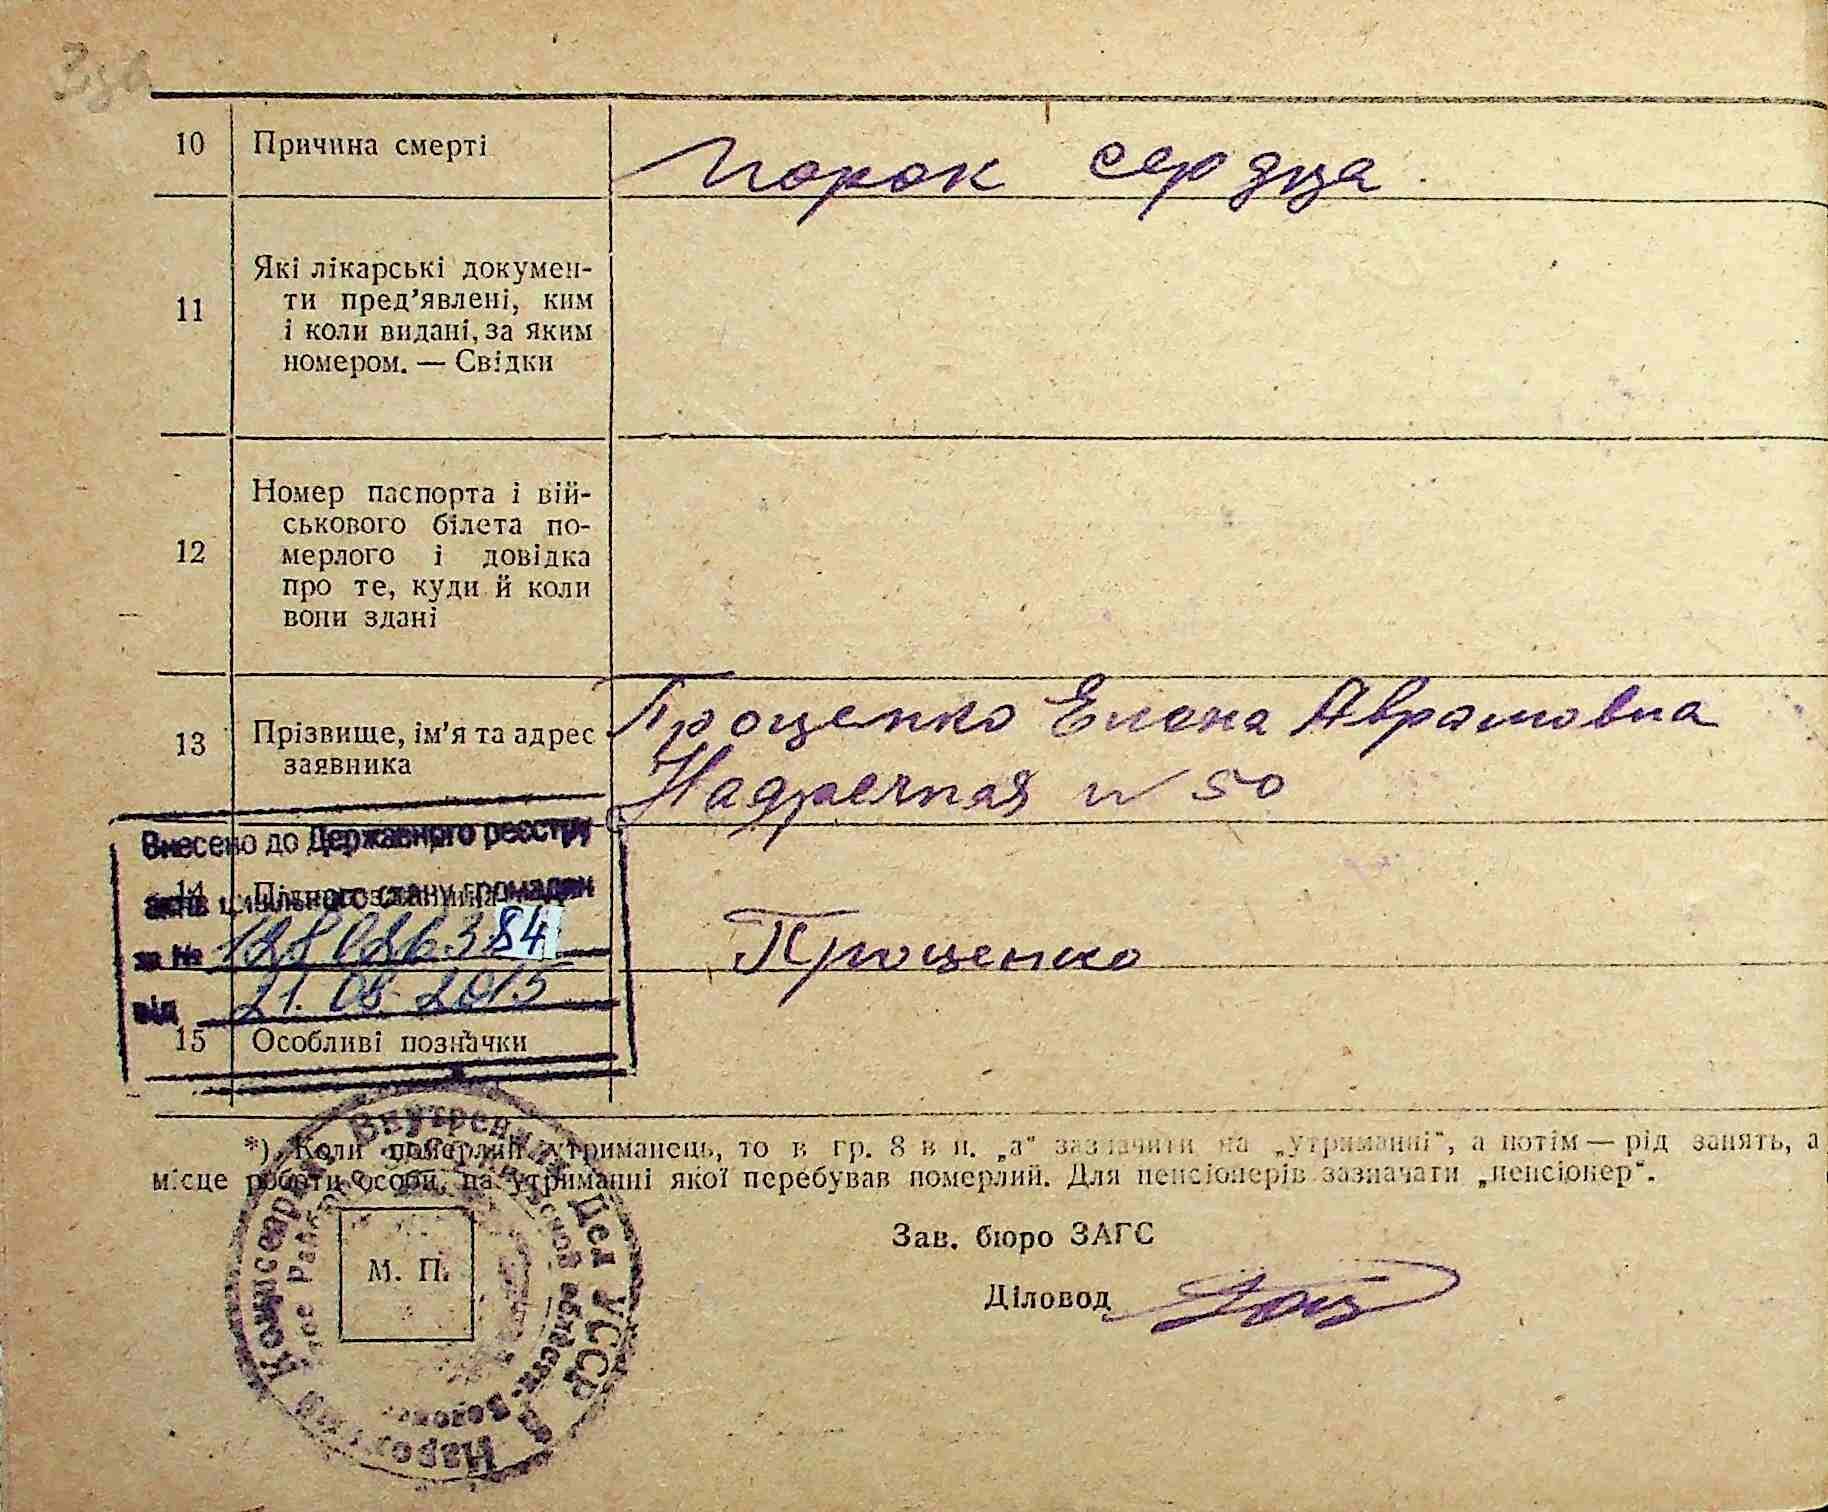 10 Причина смерті порок сердца
11 Які лікарські докумен-
ти пред’явлені, ким
і коли видані, за яким
номером. — Свідки
12 Номер паспорта і вій-
ськового білета по-
мерлого і довідка
про те, куди й коли
вони здані
13 Прізвище, ім’я та адрес
заявника
Проценко Елена Аврамовна
Надречная № 50
Внесено до Державного реєстру
актів цивільного стану громадян
14 Підпис заявника
Проценко
за №
84
від 21.08.2015
15 Особливі позначки
*) Коли померлий утриманець, то в гр. 8 в п. „а“ зазначити на „утриманні“, а потім — рід занять, а
місце роботи особи, на утриманні якої перебував померлий. Для пенсіонерів зазначати „пенсіонер“.
Зав. бюро ЗАГС
М. П.
Діловод
Народный Комиссариат Внутренних Дел УССР